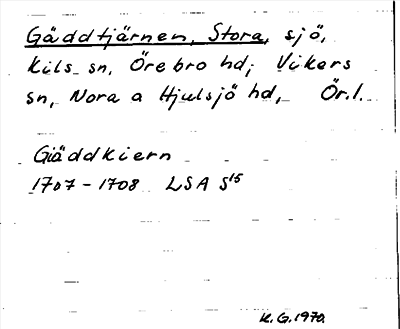 Gäddtjärnen, Stora, sjö,
Kils sn, Örebro hd; Vikers
sn, Nora a Hjulsjö hd, Ör.l.
Giäddkiern
1707-1708 LSA S15
K.G.1970.